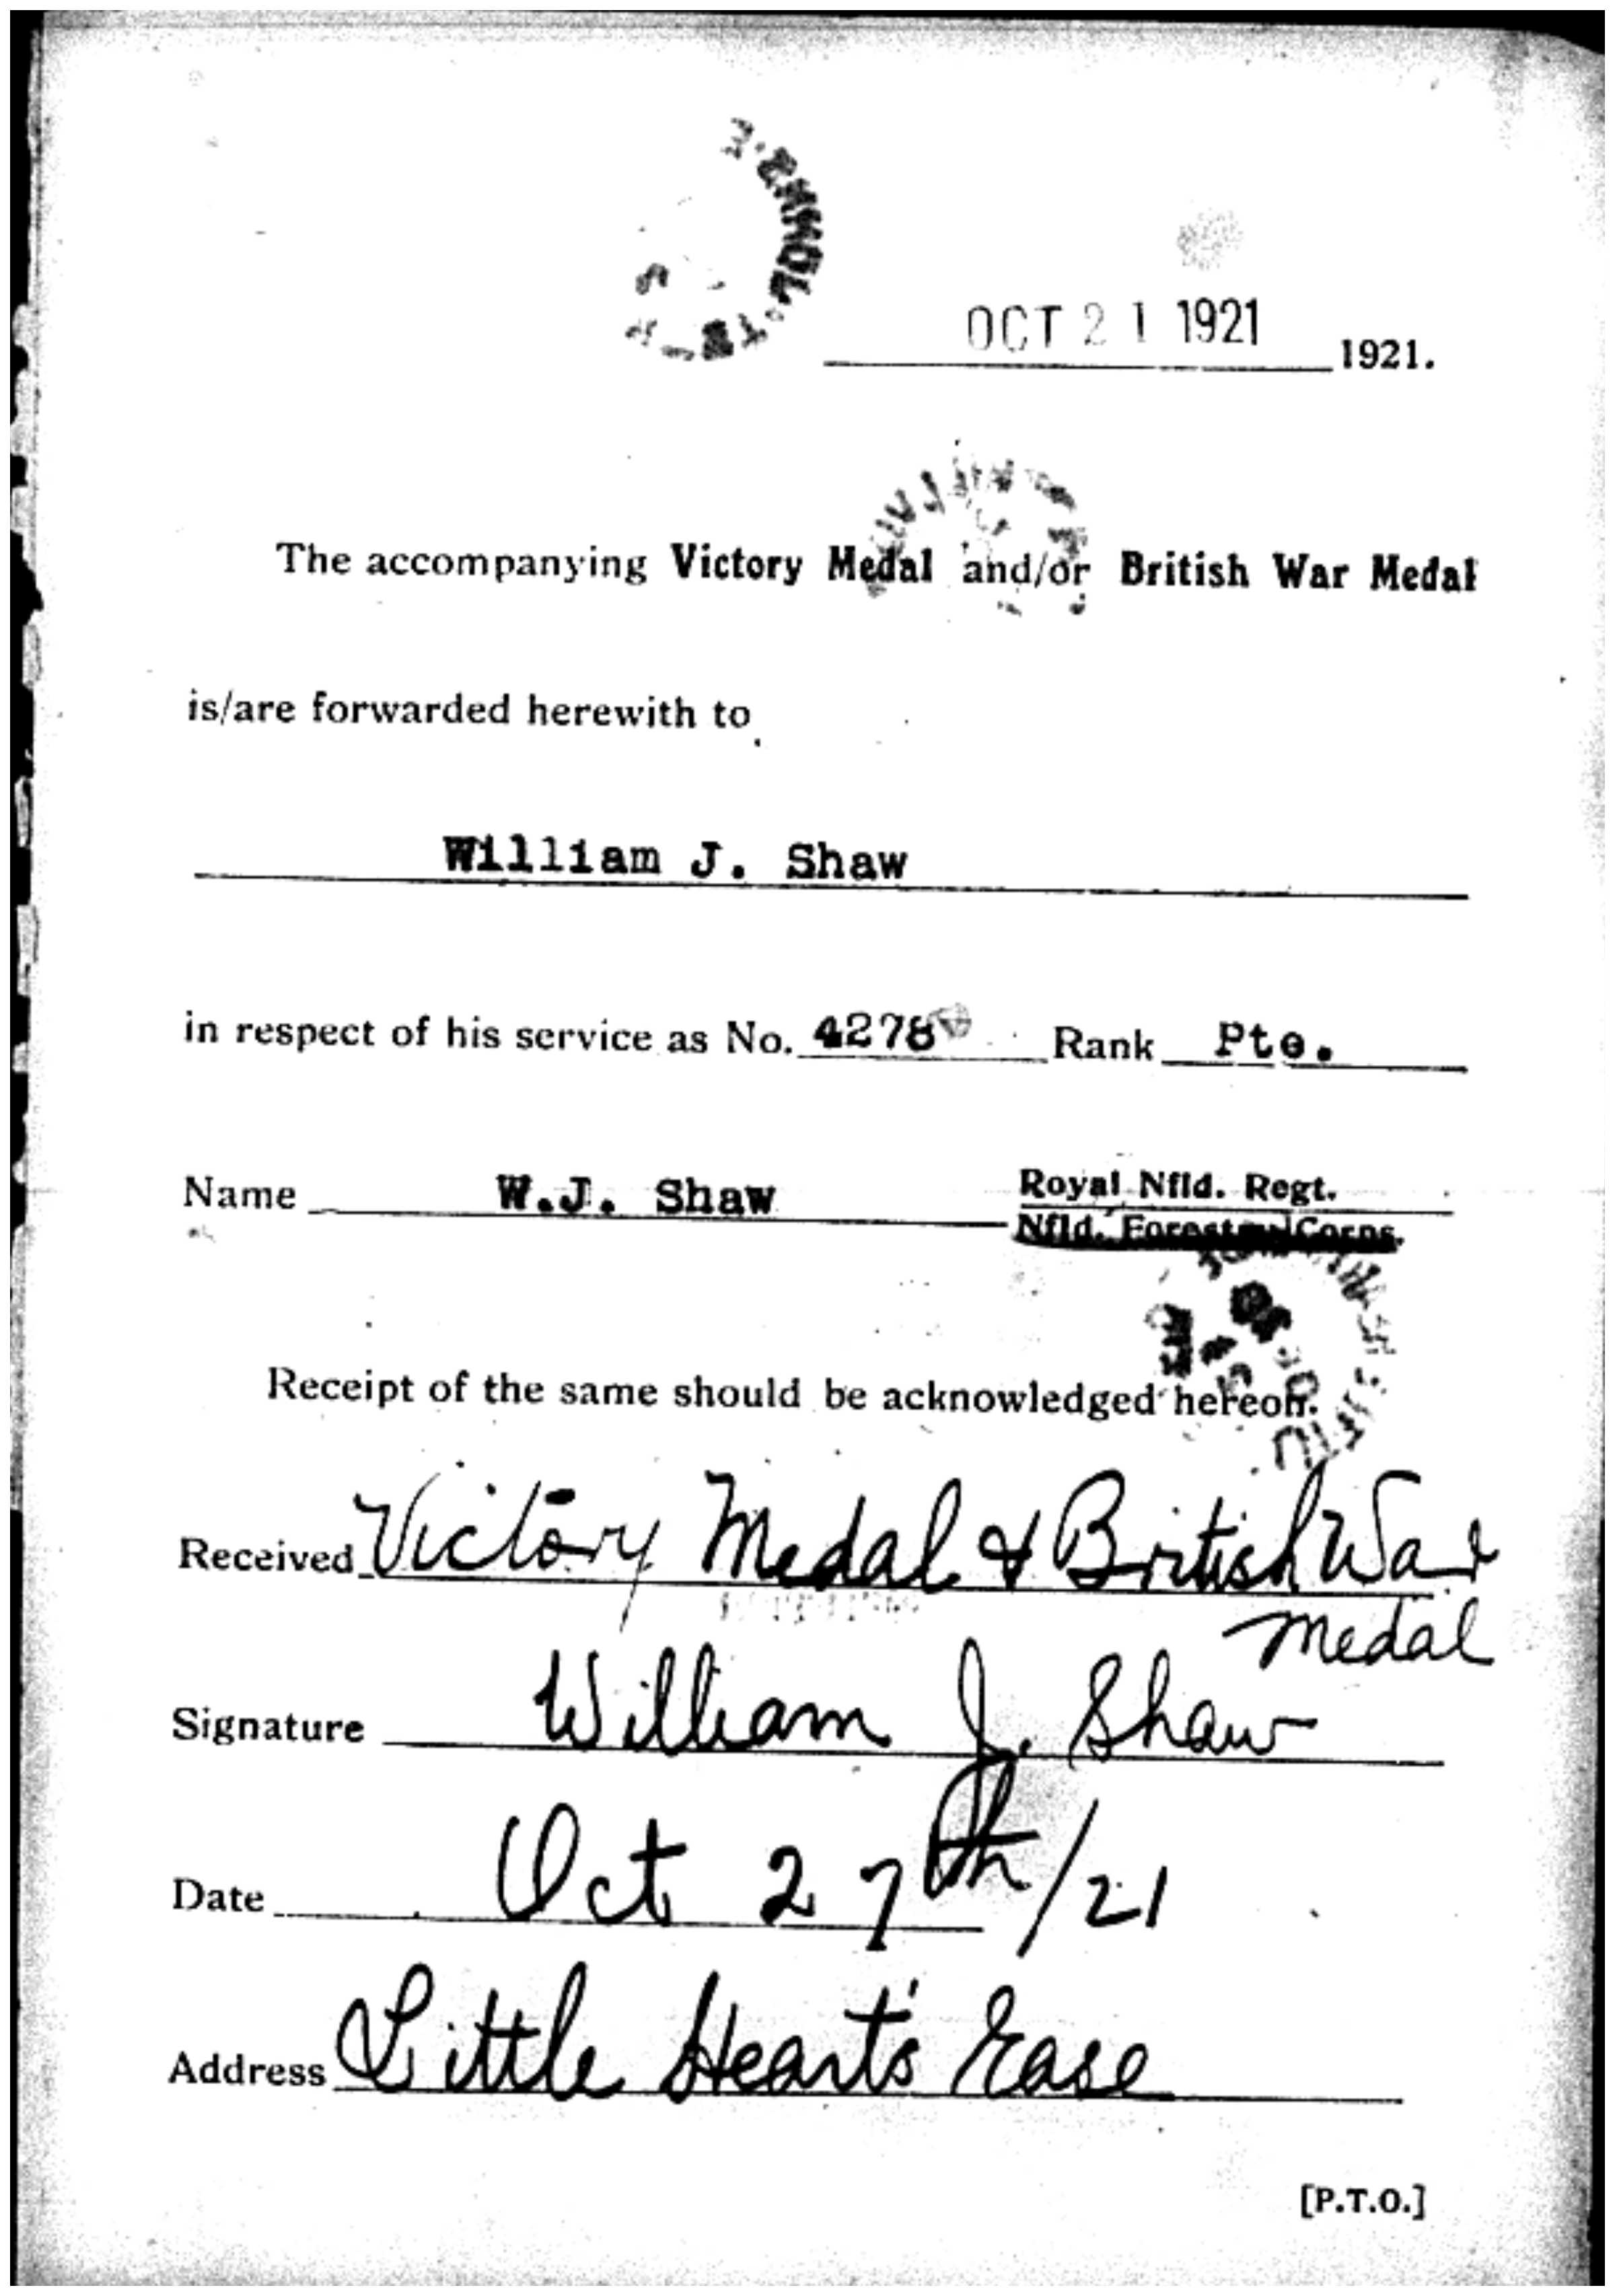 OCT 21 1921 1921.
The accompanying Victory Medal and/or British War Medal
is/are forwarded herewith to
William J. Shaw
in respect of his service as No. 4278 Rank Pte.
Name W.J. Shaw Royal Nfld. Regt.
Nfld. Forestry Corps.
Receipt of the same should be acknowledged hereon.
Received Victory Medal & British War
Medal
Signature William J. Shaw
Date Oct 27th/21
Address Little Heart's Ease
[P.T.O.]